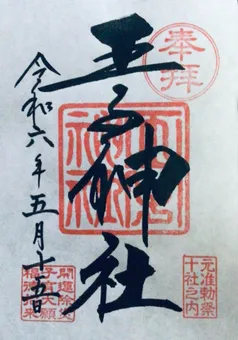 奉拝
王子神社
令和六年五月十五日
元准勅祭
十社之内
開運除災
子育大願
福徳招来